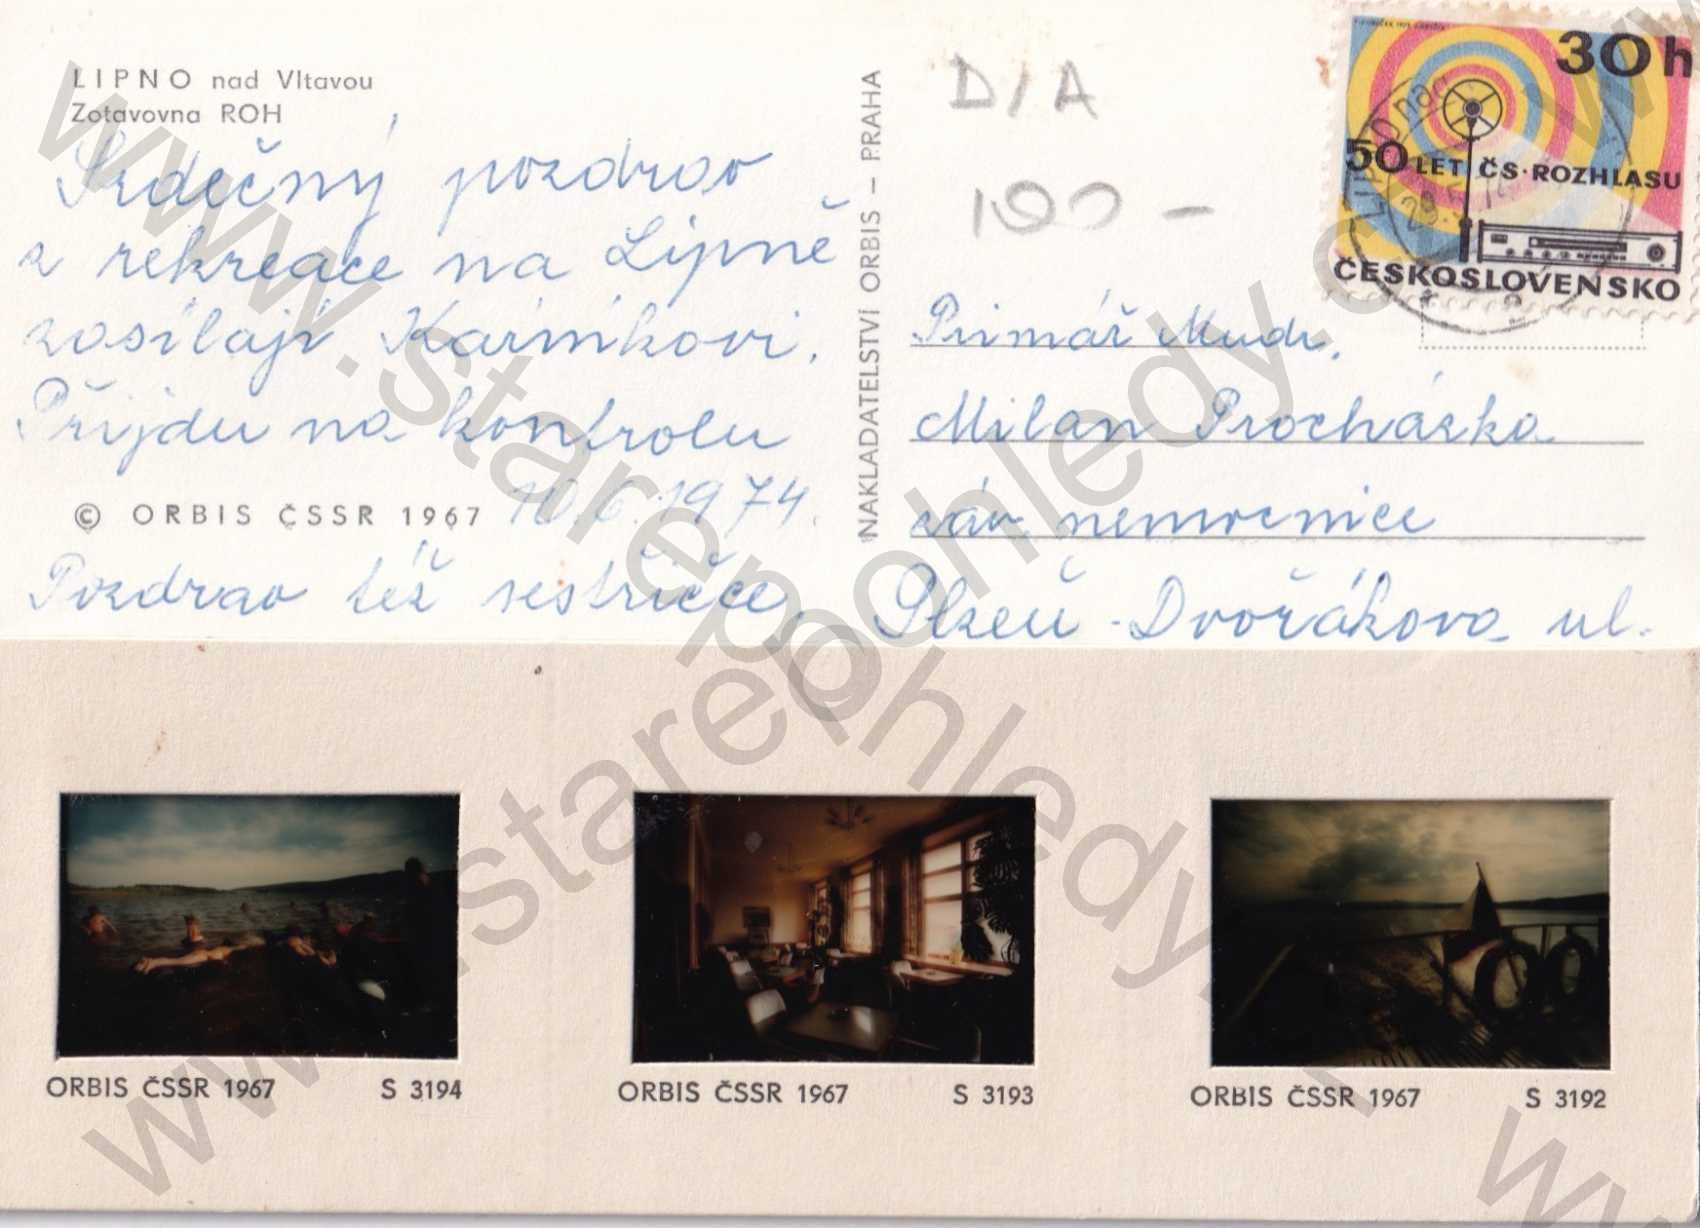 LIPNO nad Vltavou
Zotavovna ROH
Srdečný pozdrav
z rekreace na Lipně
zasílají Karníkovi.
Přijdu na kontrolu
© ORBIS ČSSR 1967 10.6.1974.
Pozdrav též sestřičce.
NAKLADATELSTVÍ ORBIS – PRAHA
D/A
190 –
30 h
50 LET ČS · ROZHLASU
ČESKOSLOVENSKO
LIPNO nad
Primář Mudr.
Milan Procházka
záv nemocnice
Plzeň - Dvořákova ul.
ORBIS ČSSR 1967 S 3194
ORBIS ČSSR 1967 S 3193
ORBIS ČSSR 1967 S 3192
www.starepohledy.cz
www.starepohledy.